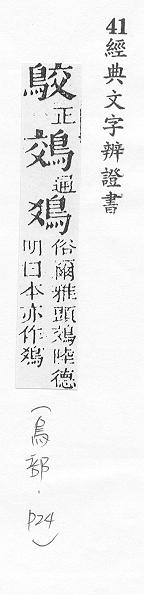 41經典文字辨證書
正
鵁通
俗爾雅頭鵁陸德
明曰本亦作
(鳥部.P24)